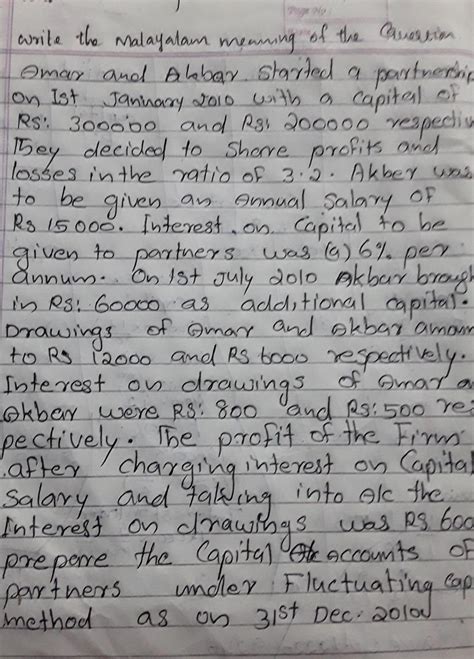 write the Malayalam meaning of the Question
Omar and Akbar started a partnership
on 1st Janinary 2010 with a capital of
Rs: 300000 and Rs: 200000 respectiv
They decided to share profits and
losses in the ratio of 3.2. Akber was
to be given an Annual Salary of
Rs 15000. Interest on Capital to be
given to partners was (a) 6% per
annum. On 1st July 2010 Akbar brough
in Rs: 60000 as additional capital.
Drawings of Omar and Akbar amoun
to Rs 12000 and Rs 6000 respectively.
Interest on drawings of Omar a
Akbar were RS: 800 and Rs: 500 res
pectively. The profit of the Firm
after charging interest on Capital
Salary and taking into A/c the
Interest on drawings was Rs 600
prepare the Capital accounts of
partners under Fluctuating cap
method as on 31st Dec. 2010